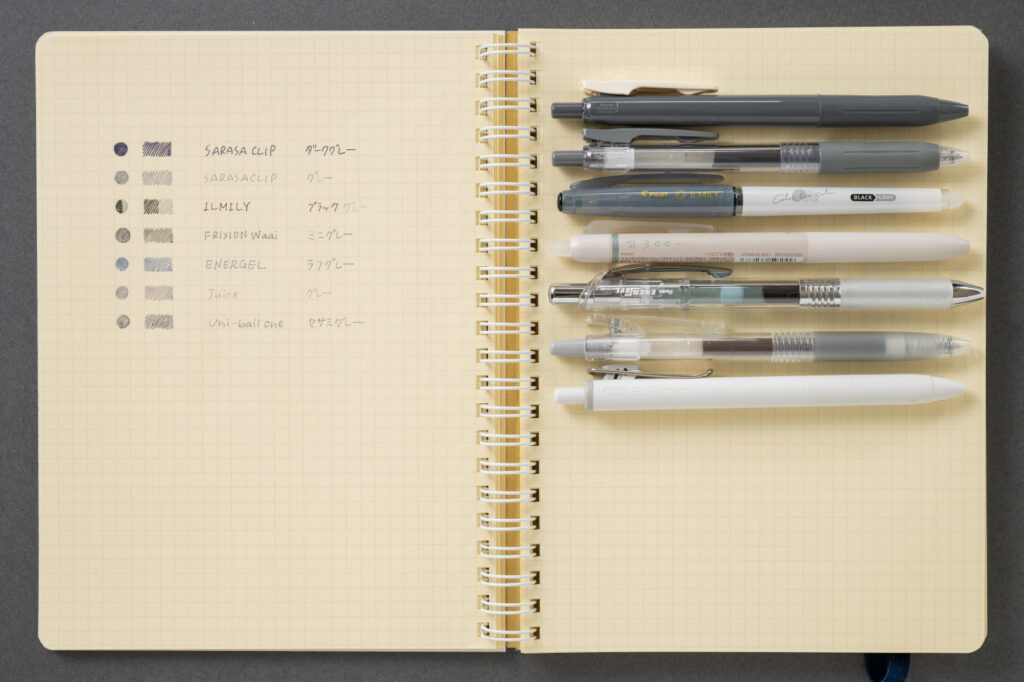 SARASA CLIP ダークグレー
SARASA CLIP グレー
ILMILY ブラック グレー
FRIXION Waai ミニグレー
ENERGEL ラフグレー
Juice グレー
Uni-ball one セサミグレー
PILOT ILMILY
Color Two Color
BLACK GRAY
Waai
Pentel ENERGEL